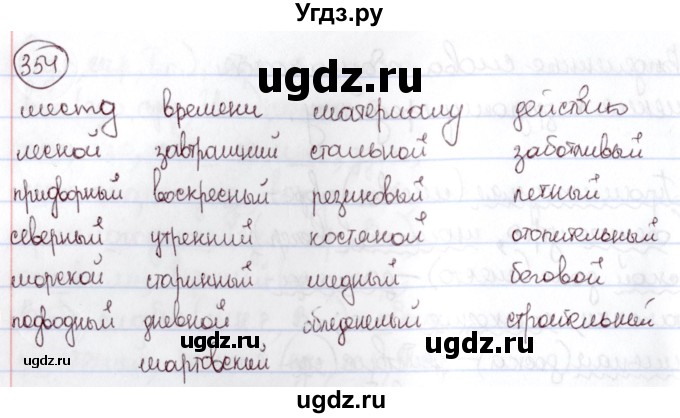 Угдз.ру
ugdz.ru
354
ugdz.ru
месту времени материалу действию
лесной завтрашний стальной заботливый
придворный воскресный резиновый летный
северный утренний костяной отопительный
морской старинный медный беговой
подводный дневной обледенелый строительный
ugdz.ru мартовский ugdz.ru ugdz.ru
ugdz.ru